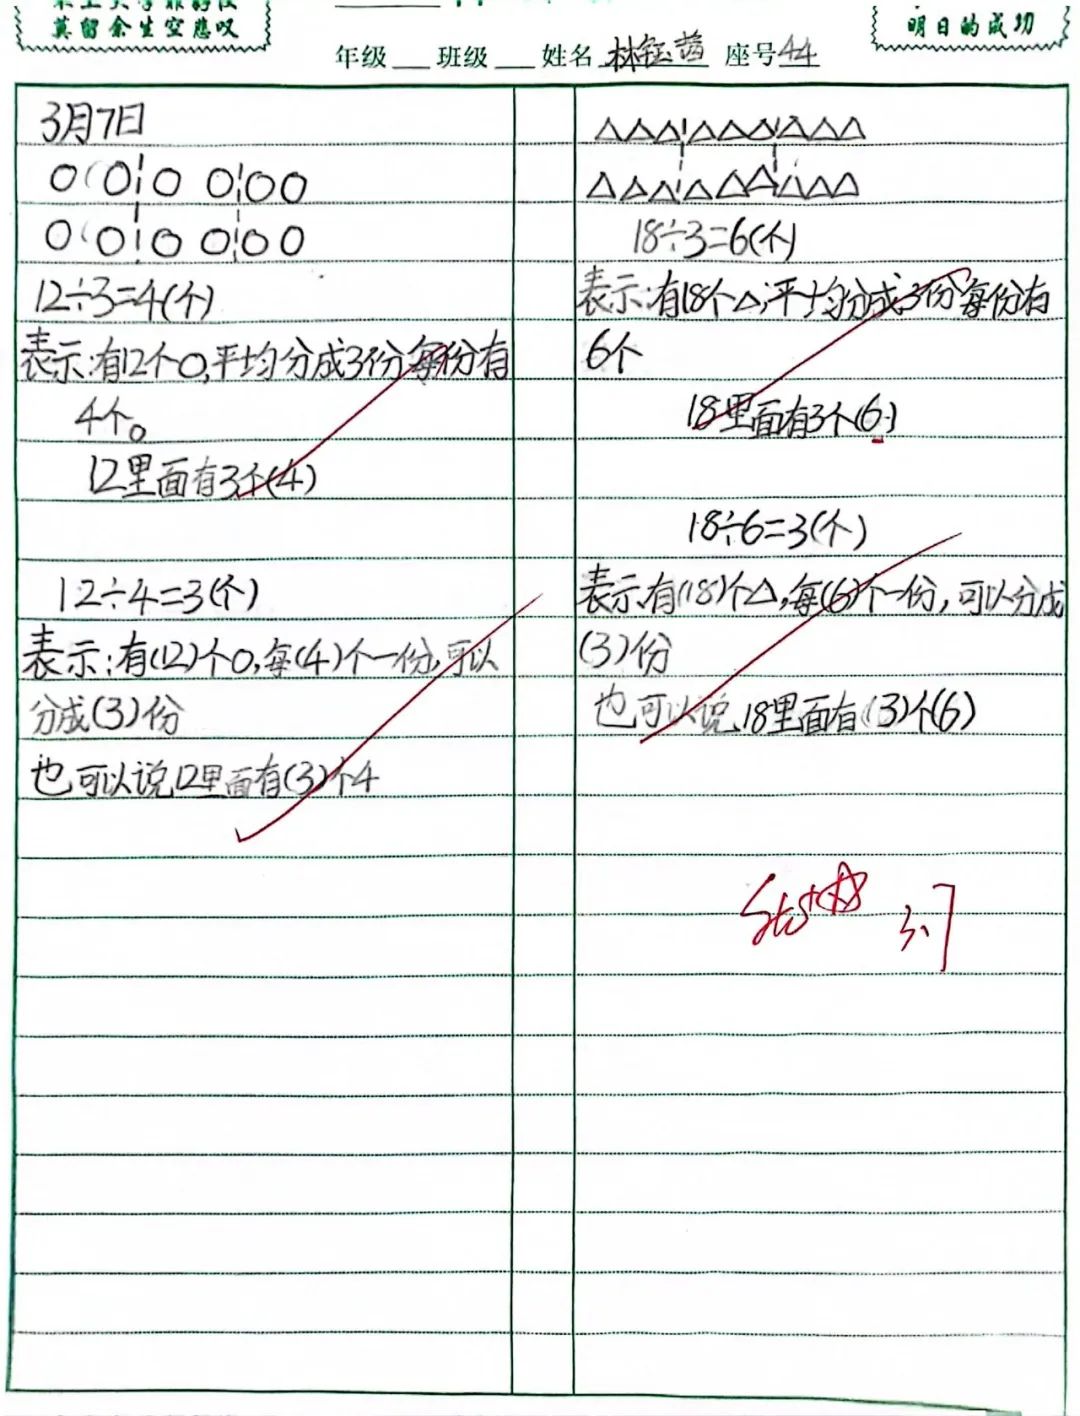 莫留余生空悲叹
明日的成功
年级 班级 姓名 林钰茜 座号 44
3月7日
12÷3=4(个)
表示:有12个O,平均分成3份每份有
4个。
12里面有3个(4)
12÷4=3(个)
表示:有(12)个O,每(4)个一份,可以
分成(3)份
也可以说12里面有(3)个4
18÷3=6(个)
表示:有18个△,平均分成3份每份有
6个
18里面有3个(6)
18÷6=3(个)
表示有(18)个△,每(6)个一份,可以分成
(3)份
也可以说18里面有(3)个(6)
3.7